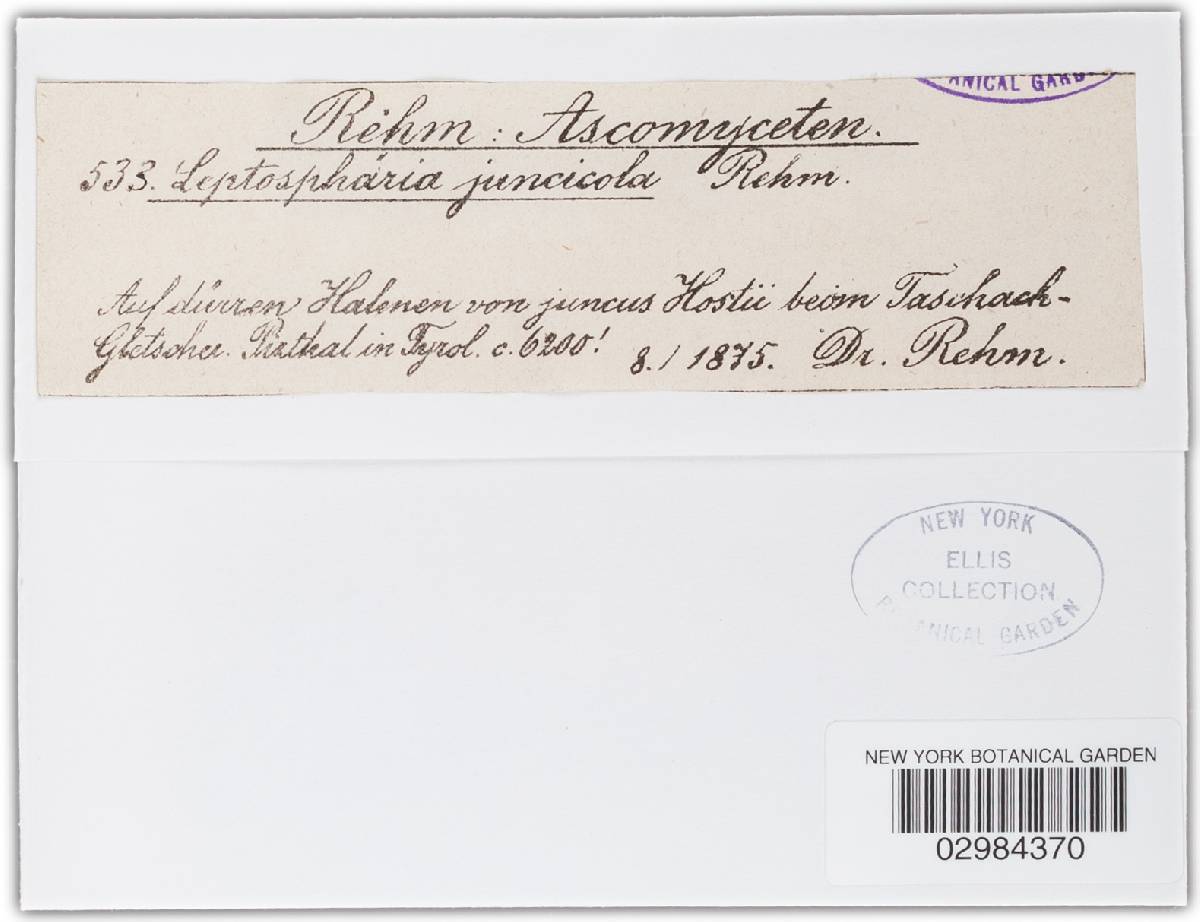 ANICAL GARD
Rehm: Ascomyceten.
533. Leptosphäria juncicola Rehm.
Auf dürren Halmen von juncus Hostii beim Taschach-
Gletscher. Pitzthal in Tyrol. c. 6200! 8./1875. Dr. Rehm.
NEW YORK
ELLIS
COLLECTION
BOTANICAL GARDEN
NEW YORK BOTANICAL GARDEN
02984370